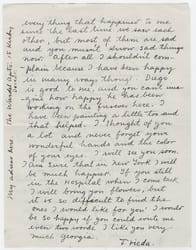 every thing that happened to me
since the last time we saw each
other, but most of them are sad
and you mustn't know sad things
now. After all I shouldn't com-
plain because I have been happy
in many ways though. Diego
is good to me, and you can't ima-
gine how happy he has been
working on the frescoes here. I
have been painting a little too and
that helped. I thought of you
a lot and never forget your
wonderful hands and the color
of your eyes. I will see you soon.
I am sure that in New York I will
be much happier. If you still
in the hospital when I come back
I will bring you flowers, but
it is so difficult to find the
ones I would like for you. I would
be so happy if you could write me
even two words. I like you very
much Georgia.
Frieda.
My address here
The Wardell Apts. Kirby